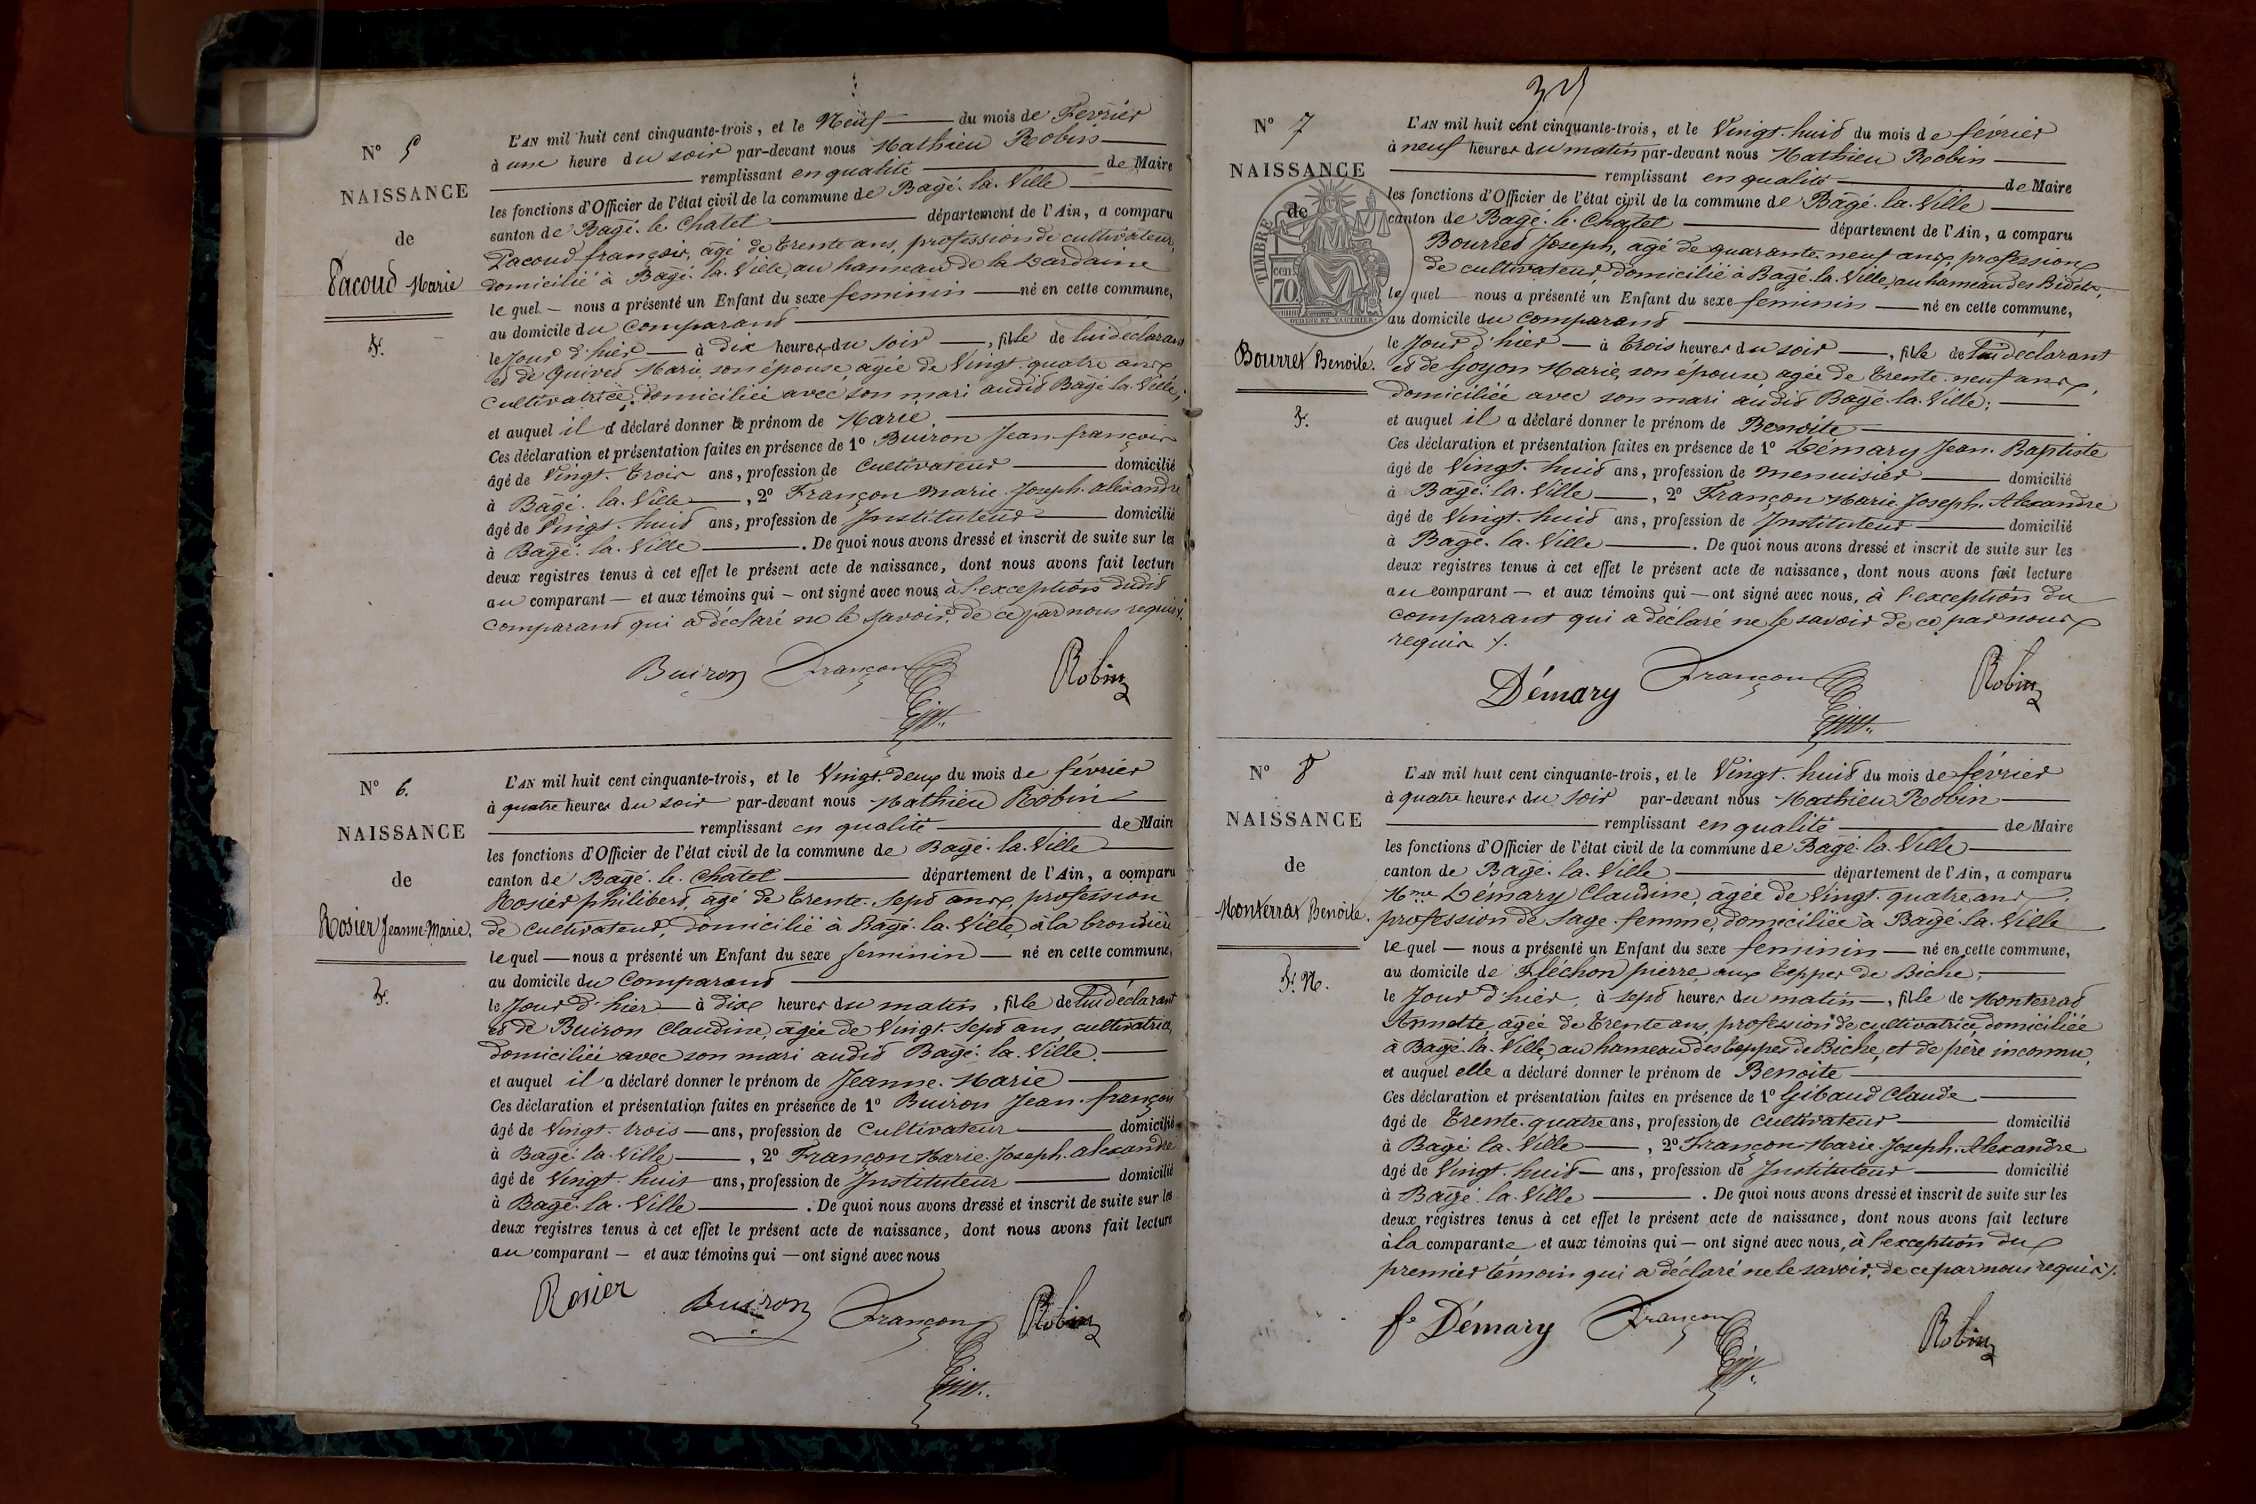 N° 5
NAISSANCE
de
Pacoud Marie
f.
L'AN mil huit cent cinquante-trois, et le Neuf du mois de Février
à une heure du soir par-devant nous Mathieu Robin
remplissant en qualité de Maire
les fonctions d'Officier de l'état civil de la commune de Bagé-la-Ville
canton de Bagé-le-Chatel département de l'Ain, a comparu
Pacoud françois, âgé de trente ans, profession de cultivateur,
domicilié à Bagé-la-Ville, au hameau de la
lequel nous a présenté un Enfant du sexe feminin né en cette commune,
au domicile du Comparant
le Jour d'hier à dix heures du soir, fille de lui déclarant
et de Quivet Marie, son épouse, âgée de Vingt-quatre ans,
cultivatrice, domiciliée avec son mari audit Bagé-la-Ville;
et auquel il a déclaré donner le prénom de Marie
Ces déclaration et présentation faites en présence de 1° Buiron Jean françois
âgé de Vingt-trois ans, profession de Cultivateur domicilié
à Bagé-la-Ville, 2° Françon Marie-Joseph-alexandre
âgé de Vingt-huit ans, profession de Instituteur domicilié
à Bagé-la-Ville. De quoi nous avons dressé et inscrit de suite sur les
deux registres tenus à cet effet le présent acte de naissance, dont nous avons fait lecture
au comparant et aux témoins qui ont signé avec nous, à l'exception dudit
comparant qui a déclaré ne le savoir, de ce par nous requis.
Buiron Françon Robin
N° 6.
NAISSANCE
de
Rosier Jeanne-Marie.
f.
L'AN mil huit cent cinquante-trois, et le Vingt-deux du mois de février
à quatre heures du soir par-devant nous Mathieu Robin
remplissant en qualité de Maire
les fonctions d'Officier de l'état civil de la commune de Bagé-la-Ville
canton de Bagé-le-Chatel département de l'Ain, a comparu
Rosier philibert, âgé de trente-sept ans, profession
de cultivateur, domicilié à Bagé-la-Ville, à la
lequel nous a présenté un Enfant du sexe feminin né en cette commune,
au domicile du Comparant
le Jour d'hier à dix heures du matin, fille de lui déclarant
et de Buiron Claudine, âgée de Vingt-sept ans, cultivatrice,
domiciliée avec son mari audit Bagé-la-Ville.
et auquel il a déclaré donner le prénom de Jeanne-Marie
Ces déclaration et présentation faites en présence de 1° Buiron Jean-françois
âgé de Vingt-trois ans, profession de Cultivateur domicilié
à Bagé-la-Ville, 2° Françon Marie-Joseph-alexandre
âgé de Vingt-huit ans, profession de Instituteur domicilié
à Bagé-la-Ville. De quoi nous avons dressé et inscrit de suite sur les
deux registres tenus à cet effet le présent acte de naissance, dont nous avons fait lecture
au comparant et aux témoins qui ont signé avec nous
Rosier Buiron Françon Robin
N° 7
NAISSANCE
de
TIMBRE
cen
70
Bourret Benoite.
f.
L'AN mil huit cent cinquante-trois, et le Vingt-huit du mois de février
à neuf heures du matin par-devant nous Mathieu Robin
remplissant en qualité de Maire
les fonctions d'Officier de l'état civil de la commune de Bagé-la-Ville
canton de Bagé-le-Chatel département de l'Ain, a comparu
Bourret Joseph, âgé de quarante-neuf ans, profession
de cultivateur, domicilié à Bagé-la-Ville, au hameau des
lequel nous a présenté un Enfant du sexe feminin né en cette commune,
au domicile du Comparant
le Jour d'hier à trois heures du soir, fille de lui déclarant
et de Goyon Marie, son épouse, agée de trente-neuf ans,
domiciliée avec son mari audit Bagé-la-Ville;
et auquel il a déclaré donner le prénom de Benoite
Ces déclaration et présentation faites en présence de 1° Démary Jean-Baptiste
âgé de Vingt-huit ans, profession de menuisier domicilié
à Bagé-la-Ville, 2° Françon Marie-Joseph-Alexandre
âgé de Vingt-huit ans, profession de Instituteur domicilié
à Bagé-la-Ville. De quoi nous avons dressé et inscrit de suite sur les
deux registres tenus à cet effet le présent acte de naissance, dont nous avons fait lecture
au comparant et aux témoins qui ont signé avec nous, à l'exception du
comparant qui a déclaré ne le savoir de ce par nous
requis.
Démary Françon Robin
N° 8
NAISSANCE
de
Monterrat Benoite.
f. N.
L'AN mil huit cent cinquante-trois, et le Vingt-huit du mois de février
à quatre heures du soir par-devant nous Mathieu Robin
remplissant en qualité de Maire
les fonctions d'Officier de l'état civil de la commune de Bagé-la-Ville
canton de Bagé-la-Ville département de l'Ain, a comparu
Mme Démary Claudine, âgée de Vingt-quatre ans,
profession de Sage-femme, domiciliée à Bagé-la-Ville
lequel nous a présenté un Enfant du sexe feminin né en cette commune,
au domicile de Fléchon pierre, aux Teppes de Biche,
le Jour d'hier, à sept heures du matin, fille de Monterrat
Annette, agée de trente ans, profession de cultivatrice, domiciliée
à Bagé-la-Ville, au hameau des teppes de Biche, et de père inconnu,
et auquel elle a déclaré donner le prénom de Benoite
Ces déclaration et présentation faites en présence de 1° Gibaud Claude
âgé de trente-quatre ans, profession de Cultivateur domicilié
à Bagé-la-Ville, 2° Françon Marie-Joseph-Alexandre
âgé de Vingt-huit ans, profession de Instituteur domicilié
à Bagé-la-Ville. De quoi nous avons dressé et inscrit de suite sur les
deux registres tenus à cet effet le présent acte de naissance, dont nous avons fait lecture
à la comparante et aux témoins qui ont signé avec nous, à l'exception du
premier témoin qui a déclaré ne le savoir, de ce par nous requis.
fe Démary Françon Robin